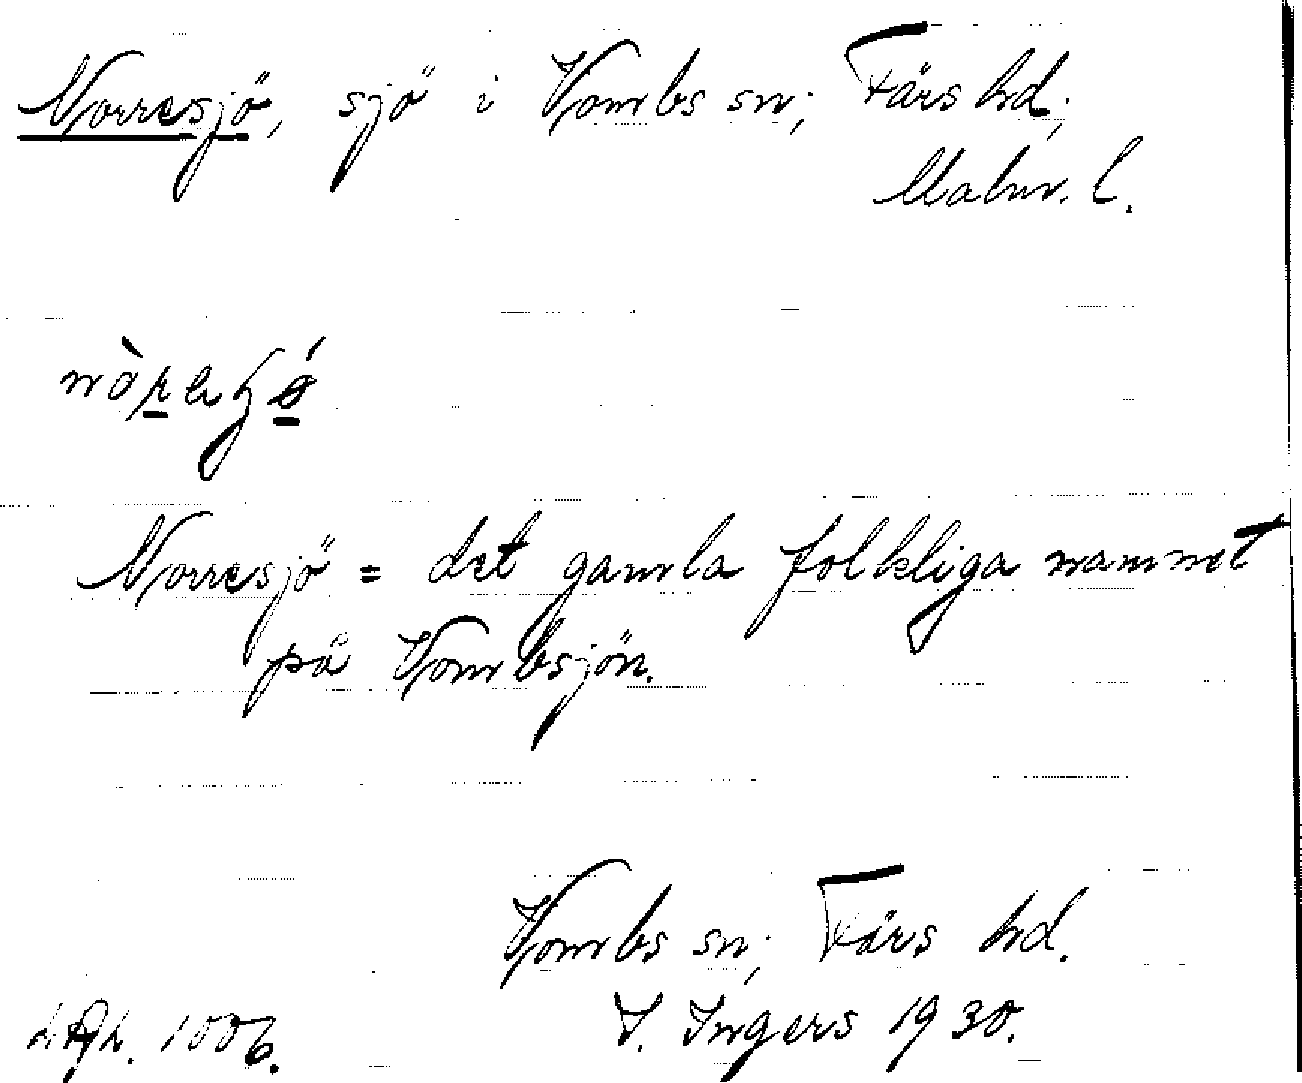 Norresjö, sjö i Vombs sn; Färs hd;
Malm. l.
Norresjö = det gamla folkliga namnet
på Vombsjön.
Vombs sn; Färs hd.
I. Ingers 1930.